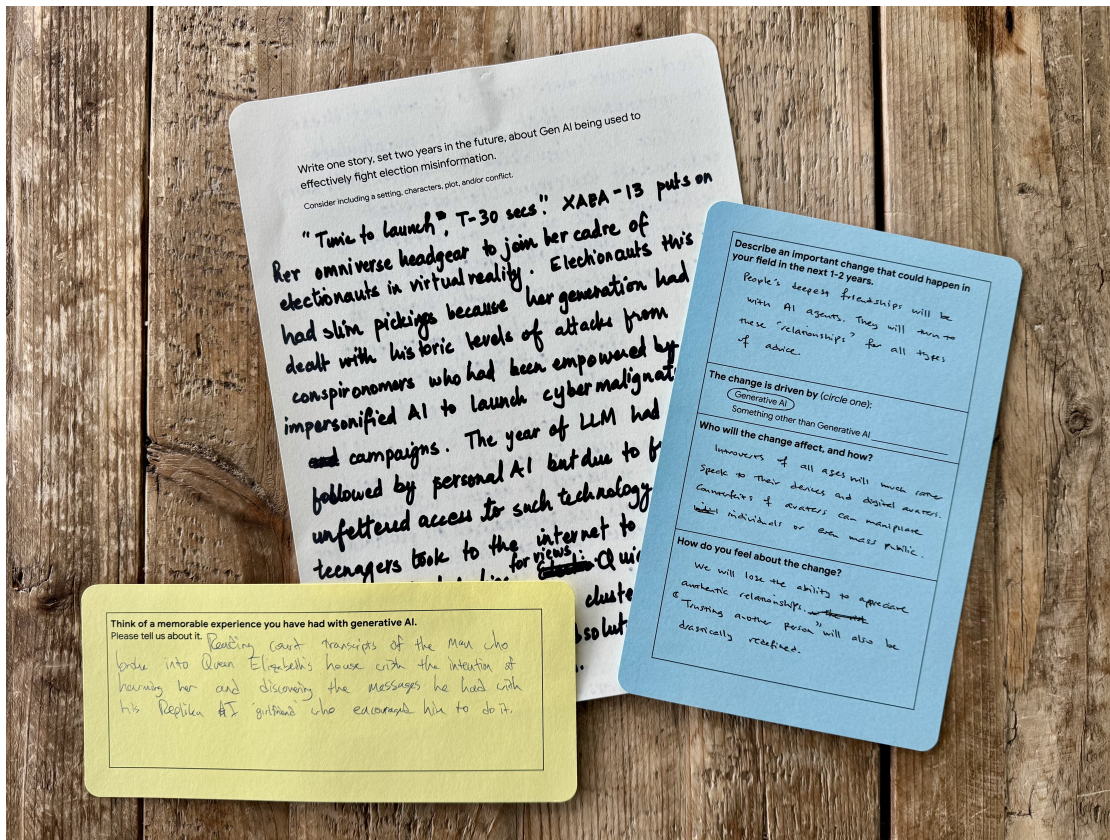 Write one story, set two years in the future, about Gen AI being used to
effectively fight election misinformation.
Consider including a setting, characters, plot, and/or conflict.
"Time to launch", T-30 secs". XAEA-13 puts on
her omniverse headgear to join her cadre of
electionauts in virtual reality. Elechionauts this
had slim pickings because her generation had
dealt with historic levels of attacks from
conspironomers who had been empowered by
impersonified AI to launch cybermalignat
campaigns. The year of LLM had
followed by personal AI but due to
unfettered access to such technology
teenagers took to the internet to
for views
Quic
cluste
solut
Describe an important change that could happen in
your field in the next 1-2 years.
People's deepest friendships will be
with AI agents. They will turn to
these "relationships" for all types
of advice.
The change is driven by (circle one):
Generative AI
Something other than Generative AI
Who will the change affect, and how?
Introverts of all ages will much rather
speak to their devices and digital avatars.
Counterfeits of avatars can manipulate
individuals or even mass public.
How do you feel about the change?
We will lose the ability to appreciate
authentic relationships.
"Trusting another person" will also be
drastically redefined.
Think of a memorable experience you have had with generative AI.
Please tell us about it. Reading court transcripts of the man who
broke into Queen Elizabeth's house with the intention of
harming her and discovering the messages he had with
his Replika AI 'girlfriend' who encouraged him to do it.